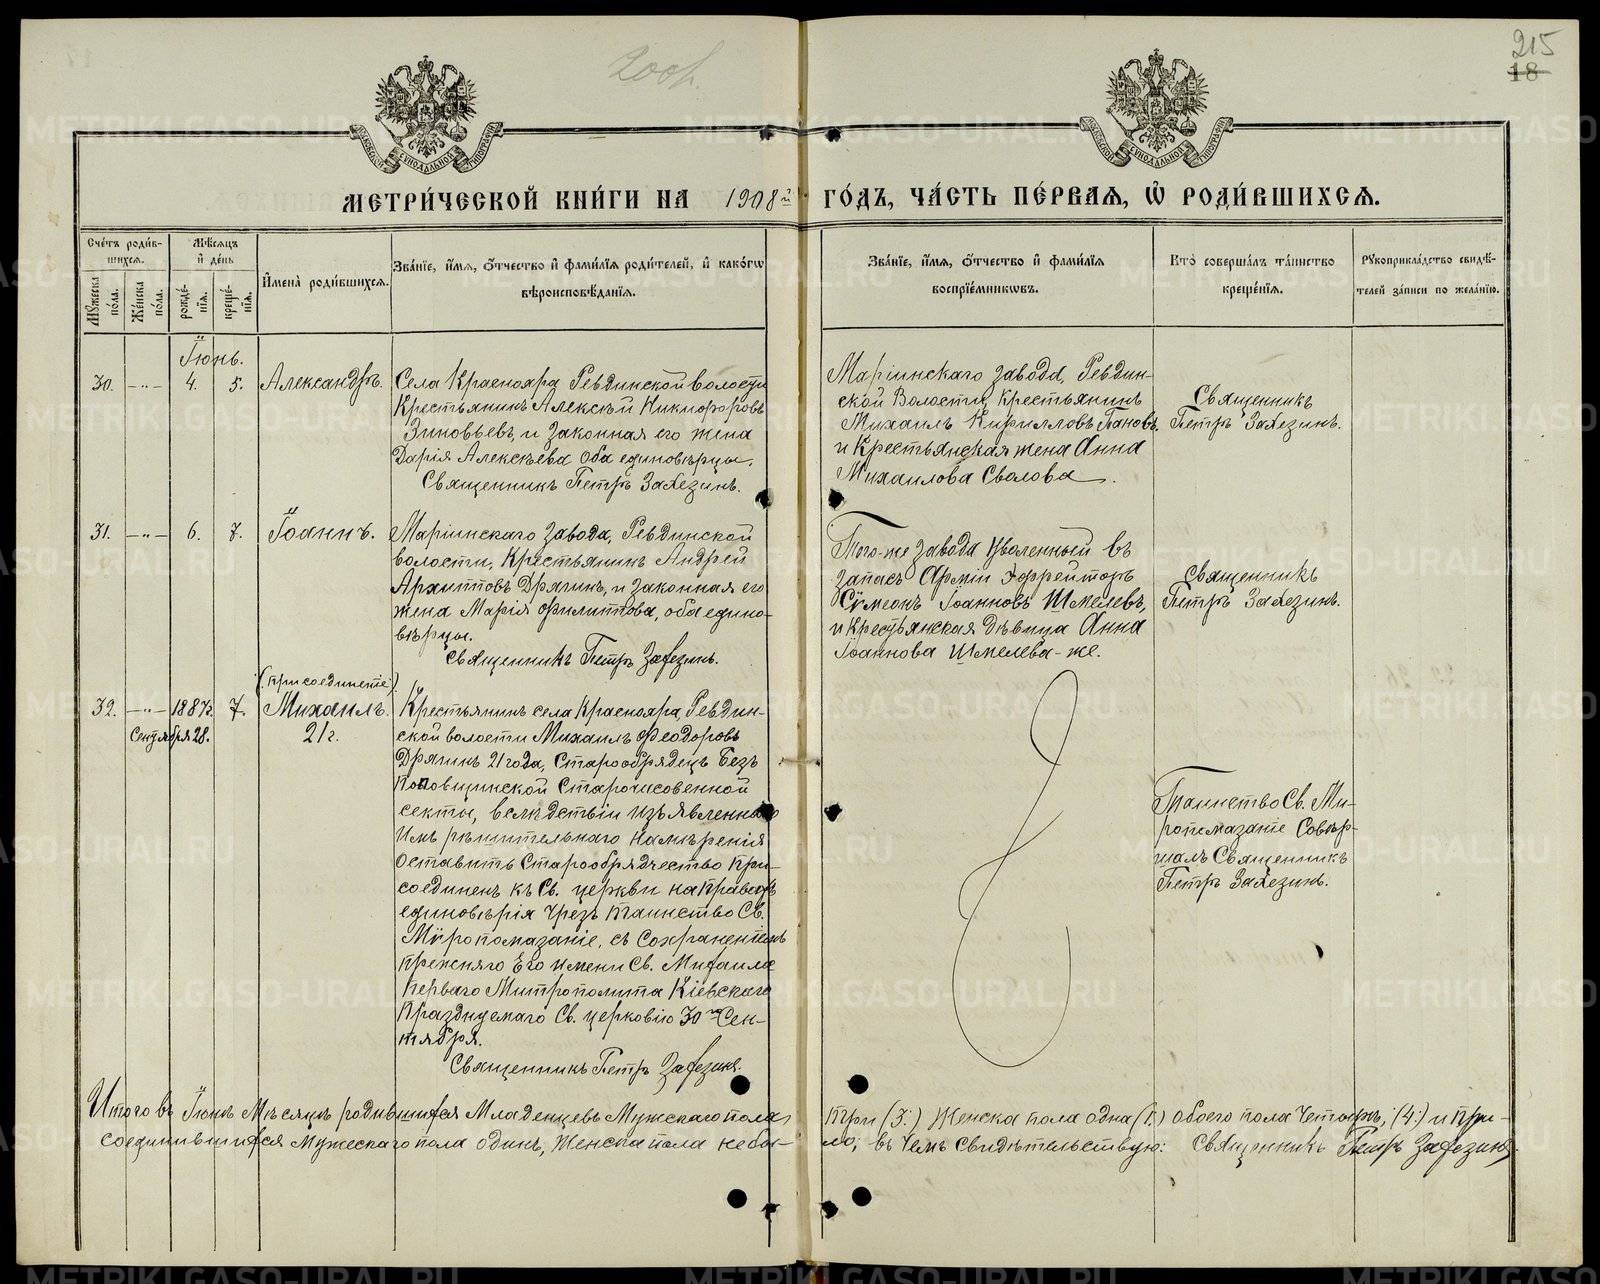 215
18
200 р.
МЕТРИЧЕСКОЙ КНИГИ НА 1908й ГОДЪ, ЧАСТЬ ПЕРВАЯ, Ѡ РОДИВШИХСЯ.
Счетъ родив-
шихся.
Мужеска
пола.
Женска
пола.
Мѣсяцъ
и день
рожде-
нія.
креще-
нія.
Имена родившихся.
Званіе, имя, отчество и фамилія родителей, и какогѡ
вѣроисповѣданія.
Званіе, имя, отчество и фамилія
воспріемникѡвъ.
Кто совершалъ таинство
крещенія.
Рукоприкладство свидѣ-
телей записи по желанію.
Іюнь.
30. -"- 4. 5. Александръ.
Села Краснояра Ревдинской волости
Крестьянинъ Алексѣй Никифоровъ
Зиновьевъ, и законная его жена
Дарія Алексѣева оба единовѣрцы.
Священникъ Петръ Залезинъ.
Маріинскаго завода, Ревдин-
ской Волости, Крестьянинъ
Михаилъ Кирилловъ Пановъ.
и Крестьянская жена Анна
Михаилова Сволова.
Священникъ
Петръ Залезинъ.
31. -"- 6. 7. Іоаннъ.
Маріинскаго завода, Ревдинской
волости, Крестьянинъ Андрей
Архипповъ Дрягинъ, и законная его
жена Марія Филиппова, оба едино-
вѣрцы.
Священникъ Петръ Залезинъ.
Того-же завода Уволенный въ
запасъ Арміи Эфрейторъ
Сѵмеонъ Іоанновъ Шмелевъ,
и Крестьянская дѣвица Анна
Іоаннова Шмелева-же.
Священникъ
Петръ Залезинъ.
(присоединеніе)
32. -"- 1887г. 7. Михаилъ.
Сентября 28. 21 г.
Крестьянинъ села Краснояра, Ревдин-
ской волости Михаилъ Феодоровъ
Дрягинъ 21 года, Старообрядецъ Безъ
поповщинской Старочасовенной
секты, вслѣдствіи изъявленнаго
Имъ рѣшительнаго намѣренія
оставить Старообрядчество при-
соединенъ къ Св. церкви на правахъ
единовѣрія чрезъ таинство Св.
Мѵропомазаніе, съ Сохраненіемъ
прежняго Его имени Св. Михаила
перваго Митрополита Кіевскаго
Празднуемаго Св. церковію 30го Сен-
тября.
Священникъ Петръ Залезинъ.
Таинство Св. Ми-
ропомазаніе Совер-
шалъ Священникъ
Петръ Залезинъ.
Итого въ Іюнѣ Мѣсяцѣ родившихся Младенцевъ Мужскаго пола три (3.) Женска пола одна (1.) обоего пола Четыре, (4.) и при-
соединившихся Мужескаго пола одинъ, Женска пола не бы- ло; въ чемъ Свидѣтельствую: Священникъ Петръ Залезинъ.
METRIKI.GASO-URAL.RU